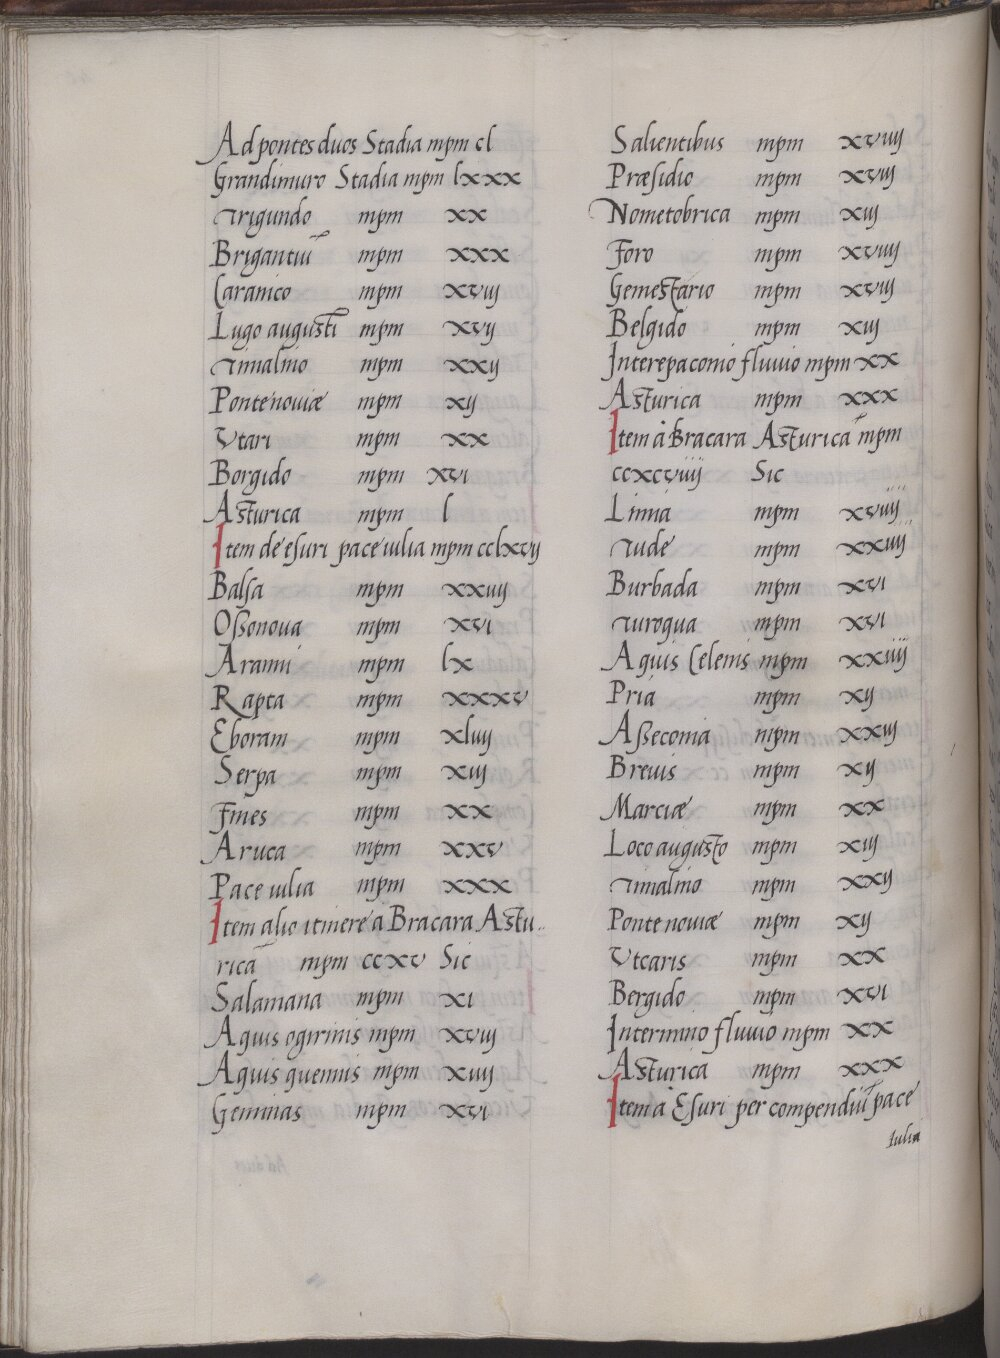 Ad pontes duos Stadia mpm cl
Grandimuro Stadia mpm lxxx
Trigundo mpm xx
Brigantiū mpm xxx
Caranico mpm xviij
Lugo augusti mpm xvij
Timalino mpm xxij
Ponte noviæ mpm xij
Vtari mpm xx
Borgido mpm xvi
Asturica mpm l
Item de esuri pace iulia mpm cclxvij
Balsa mpm xxiiij
Ossonoua mpm xvi
Aranni mpm lx
Rapta mpm xxxv
Eboram mpm xliiij
Serpa mpm xiij
Fines mpm xx
Aruca mpm xxv
Pace iulia mpm xxx
Item alio itinere a Bracara Astu..
ricā mpm ccxv Sic
Salamana mpm xi
Aquis ogirinis mpm xviij
Aquis quennis mpm xiiij
Geminas mpm xvi
Salientibus mpm xviiij
Præsidio mpm xviij
Nometobrica mpm xiij
Foro mpm xviiij
Gemestario mpm xviij
Belgido mpm xiij
Interepaconio fluuio mpm xx
Asturica mpm xxx
Item à Bracara Asturicā mpm
ccxcviiij Sic
Limia mpm xviiij
Tude mpm xxiiij
Burbada mpm xvi
Turoqua mpm xvi
Aquis Celenis mpm xxiiij
Pria mpm xij
Asseconia mpm xxiij
Breuis mpm xij
Marciæ mpm xx
Loco augusto mpm xiij
Timalino mpm xxij
Ponte noviæ mpm xij
Vtcaris mpm xx
Bergido mpm xvi
Interminio fluuio mpm xx
Asturica mpm xxx
Item a Esuri per compendiū pace
Iulia